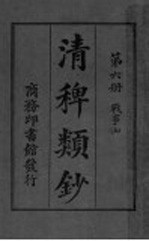 第六册 戰事
清稗類鈔
商務印書館發行